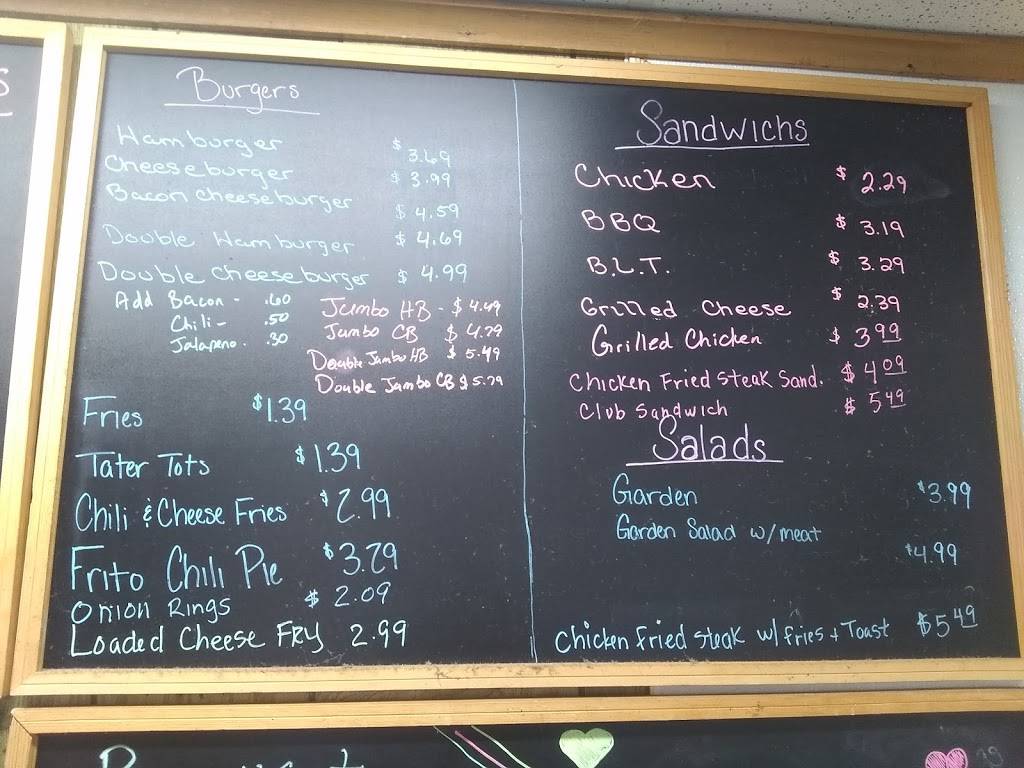 Burgers
Hamburger $3.69
Cheeseburger $3.99
Bacon cheeseburger $4.59
Double Hamburger $4.69
Double cheeseburger $4.99
Add Bacon - .60
Chili - .50
Jalapeno. .30
Jumbo HB - $4.49
Jumbo CB $4.79
Double Jumbo HB $5.49
Double Jumbo CB $5.79
Fries $1.39
Tater Tots $1.39
Chili & Cheese Fries $2.99
Frito Chili Pie $3.29
Onion Rings $2.09
Loaded Cheese FRY 2.99
Sandwichs
Chicken $2.29
BBQ $3.19
B.L.T. $3.29
Grilled Cheese $2.39
Grilled Chicken $3.99
Chicken Fried Steak Sand. $4.09
Club Sandwich $5.49
Salads
Garden $3.99
Garden Salad w/meat $4.99
Chicken fried steak w/ fries + Toast $5.49